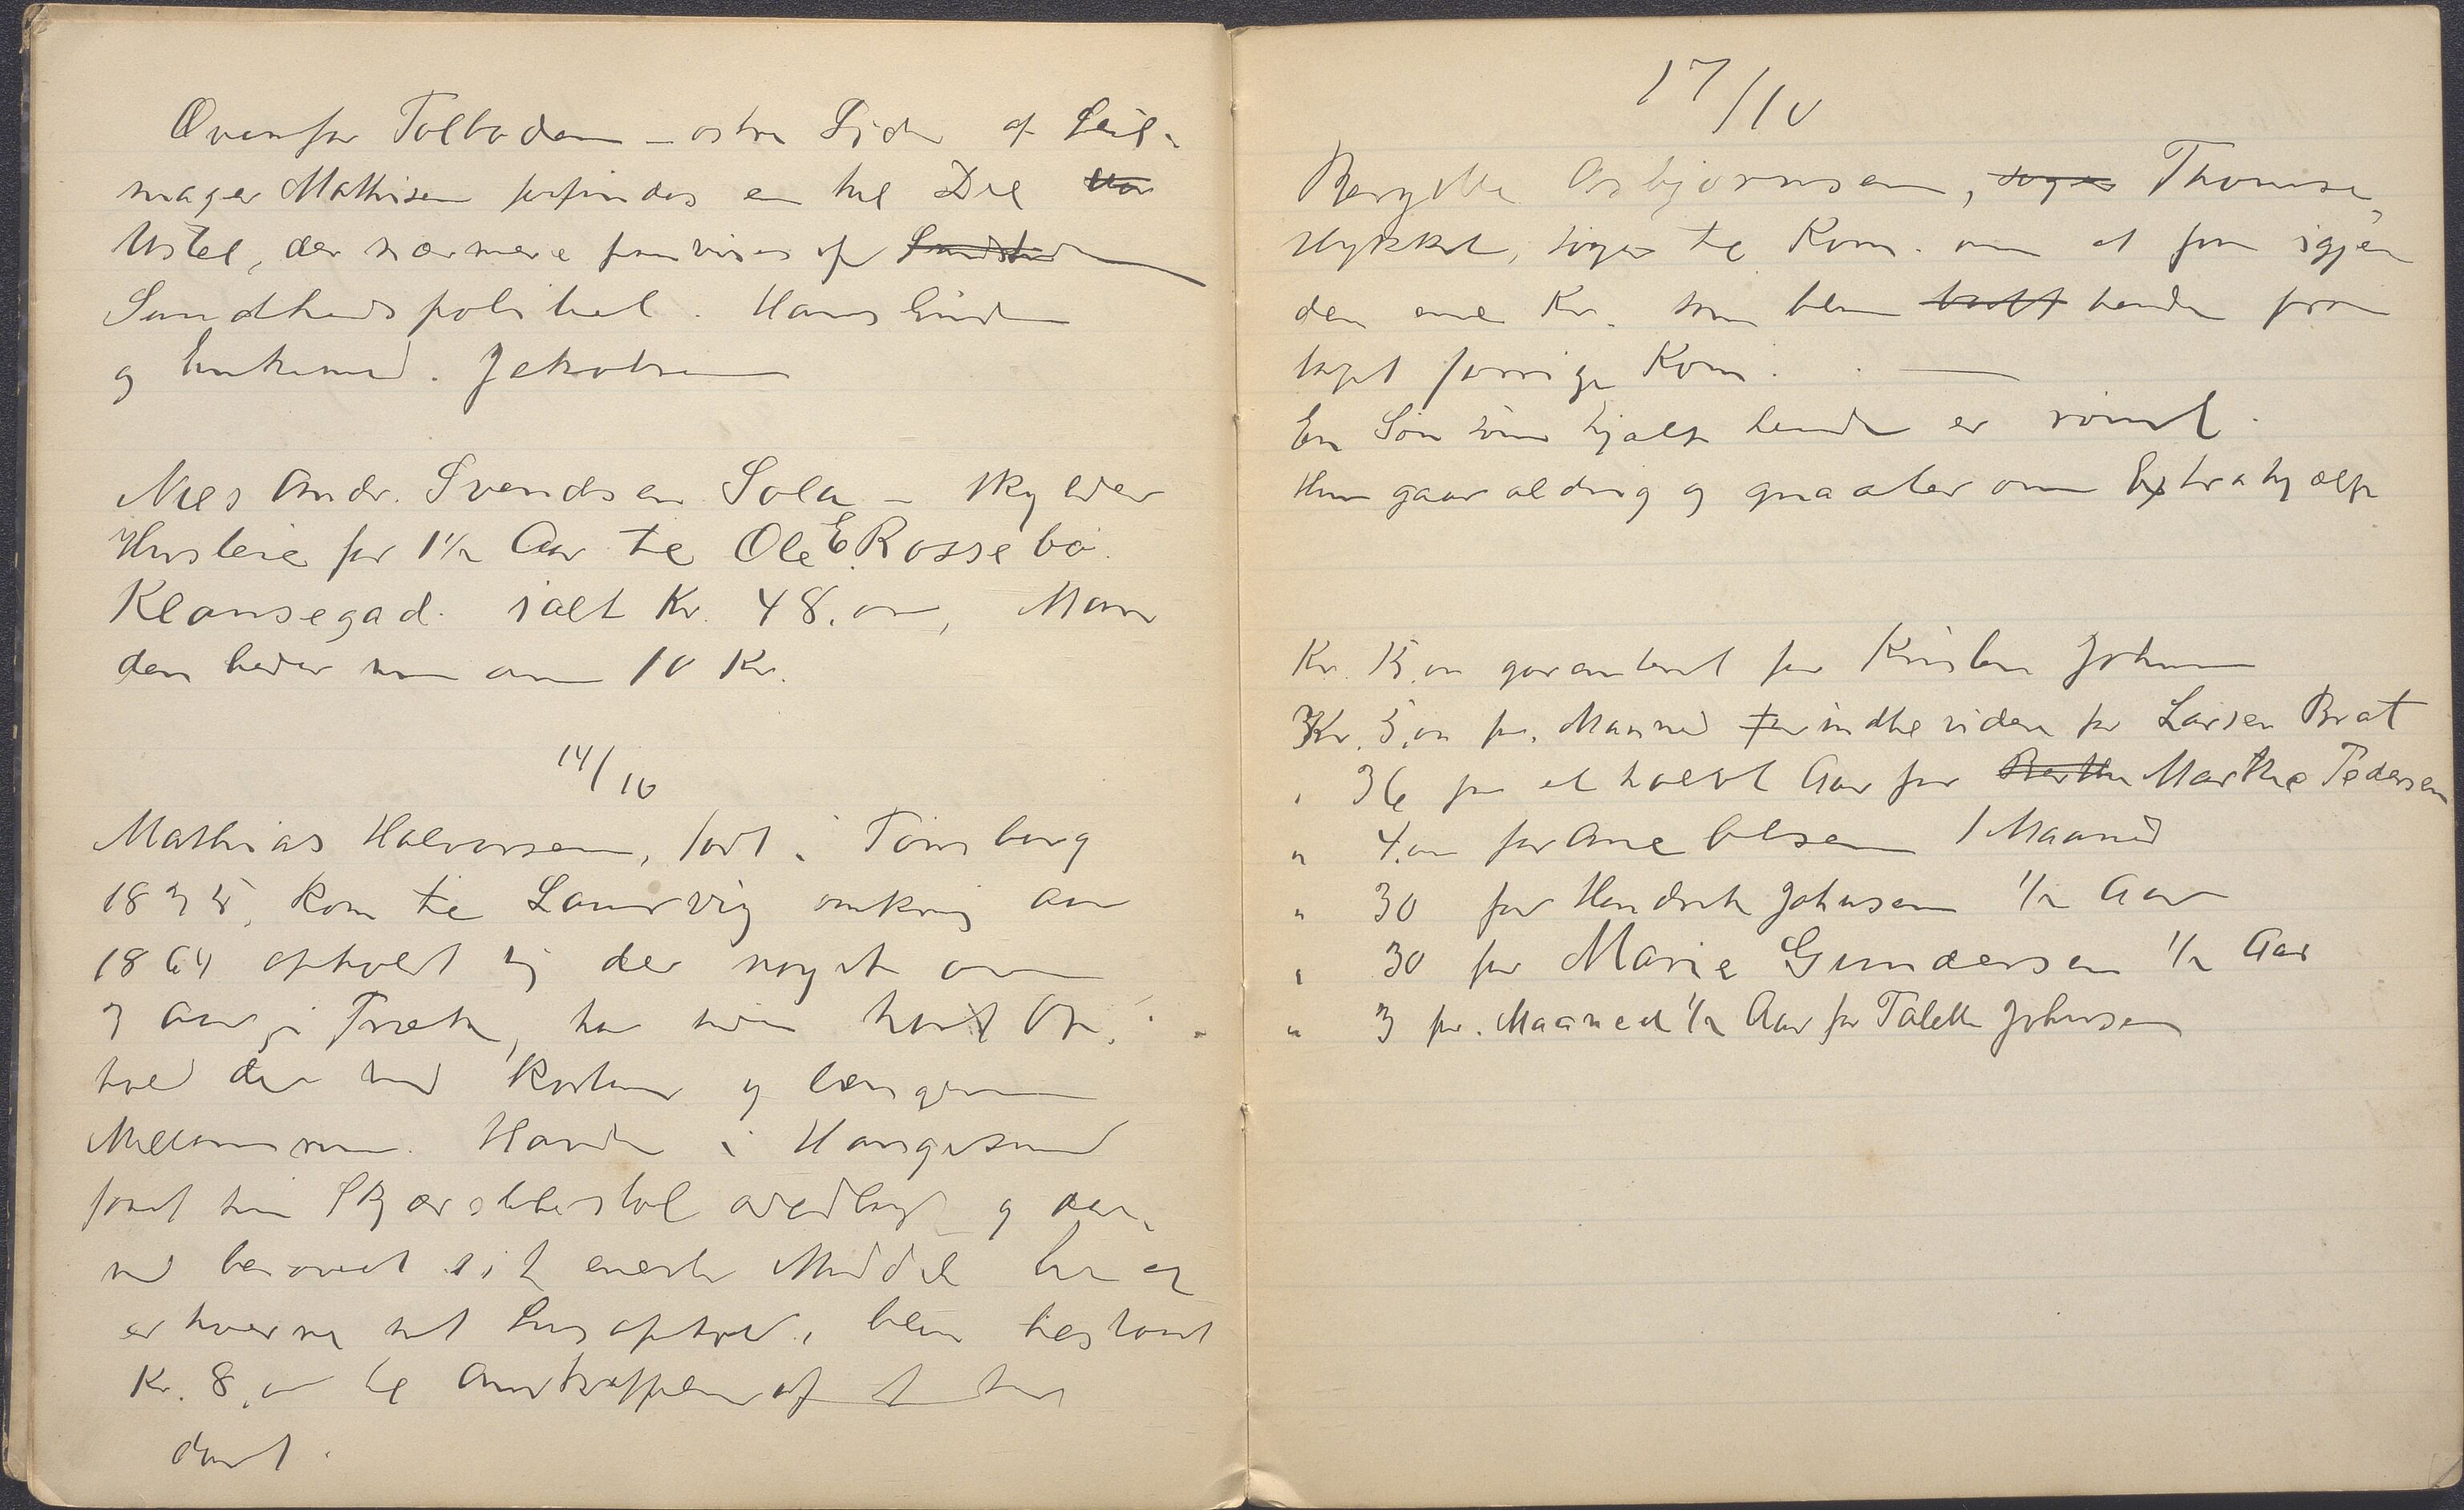 Ovenfor Tolboden – østre Side af Seil-
mager Mathisen forfindes en hel Del
Ustel, der nærmere paavises af
Sundhedspolitiet. Hans Lind
og Enkemad. Jakobsen
Nils Andr. Svendsen Sola – skylder
Husleie for 1½ Aar til Ole E. Rossebø
Klausegad. ialt Kr. 48.00, Man
den beder nu om 10 Kr.
14/10
Mathias Halvorsen, født i Tønsberg
1835, kom til Laurvig omkring Aar
1864 opholdt sig der noget over
3 Aar i Træk, har siden havt Op-
hold der ved Kortere og længere
Mellemrum. Havde i Haugesund
faaet sin Skjærslibestol ødelagt og der-
ved berøvet sit eneste Middel til at
erhverve sit Livsophold, blev tilstaaet
Kr. 8,00 til Anskaffelse af
17/10
Bergitte Asbjørnsen, søger Thomse
stykket, søger til Kom. om at faa igjen
den ene Kr. som blev hende fra
taget forrige Kom. —
En Søn som hjalp hende er rømt.
Hun gaar aldrig og gnaaler om Extrahjælp
Kr. 15.00 garanteret for Kristen Johnsen
3 Kr. 5.00 pr. Maaned indtil videre for Larsen Brat
" 36 for et halvt Aar for Berthe Marthe Pedersen
" 4.00 for Ane Olsen 1 Maaned
" 30 for Hendrik Johnsen ½ Aar
" 30 for Marie Gundersen ½ Aar
" 3 pr. Maaned ½ Aar for Talette Johnsen